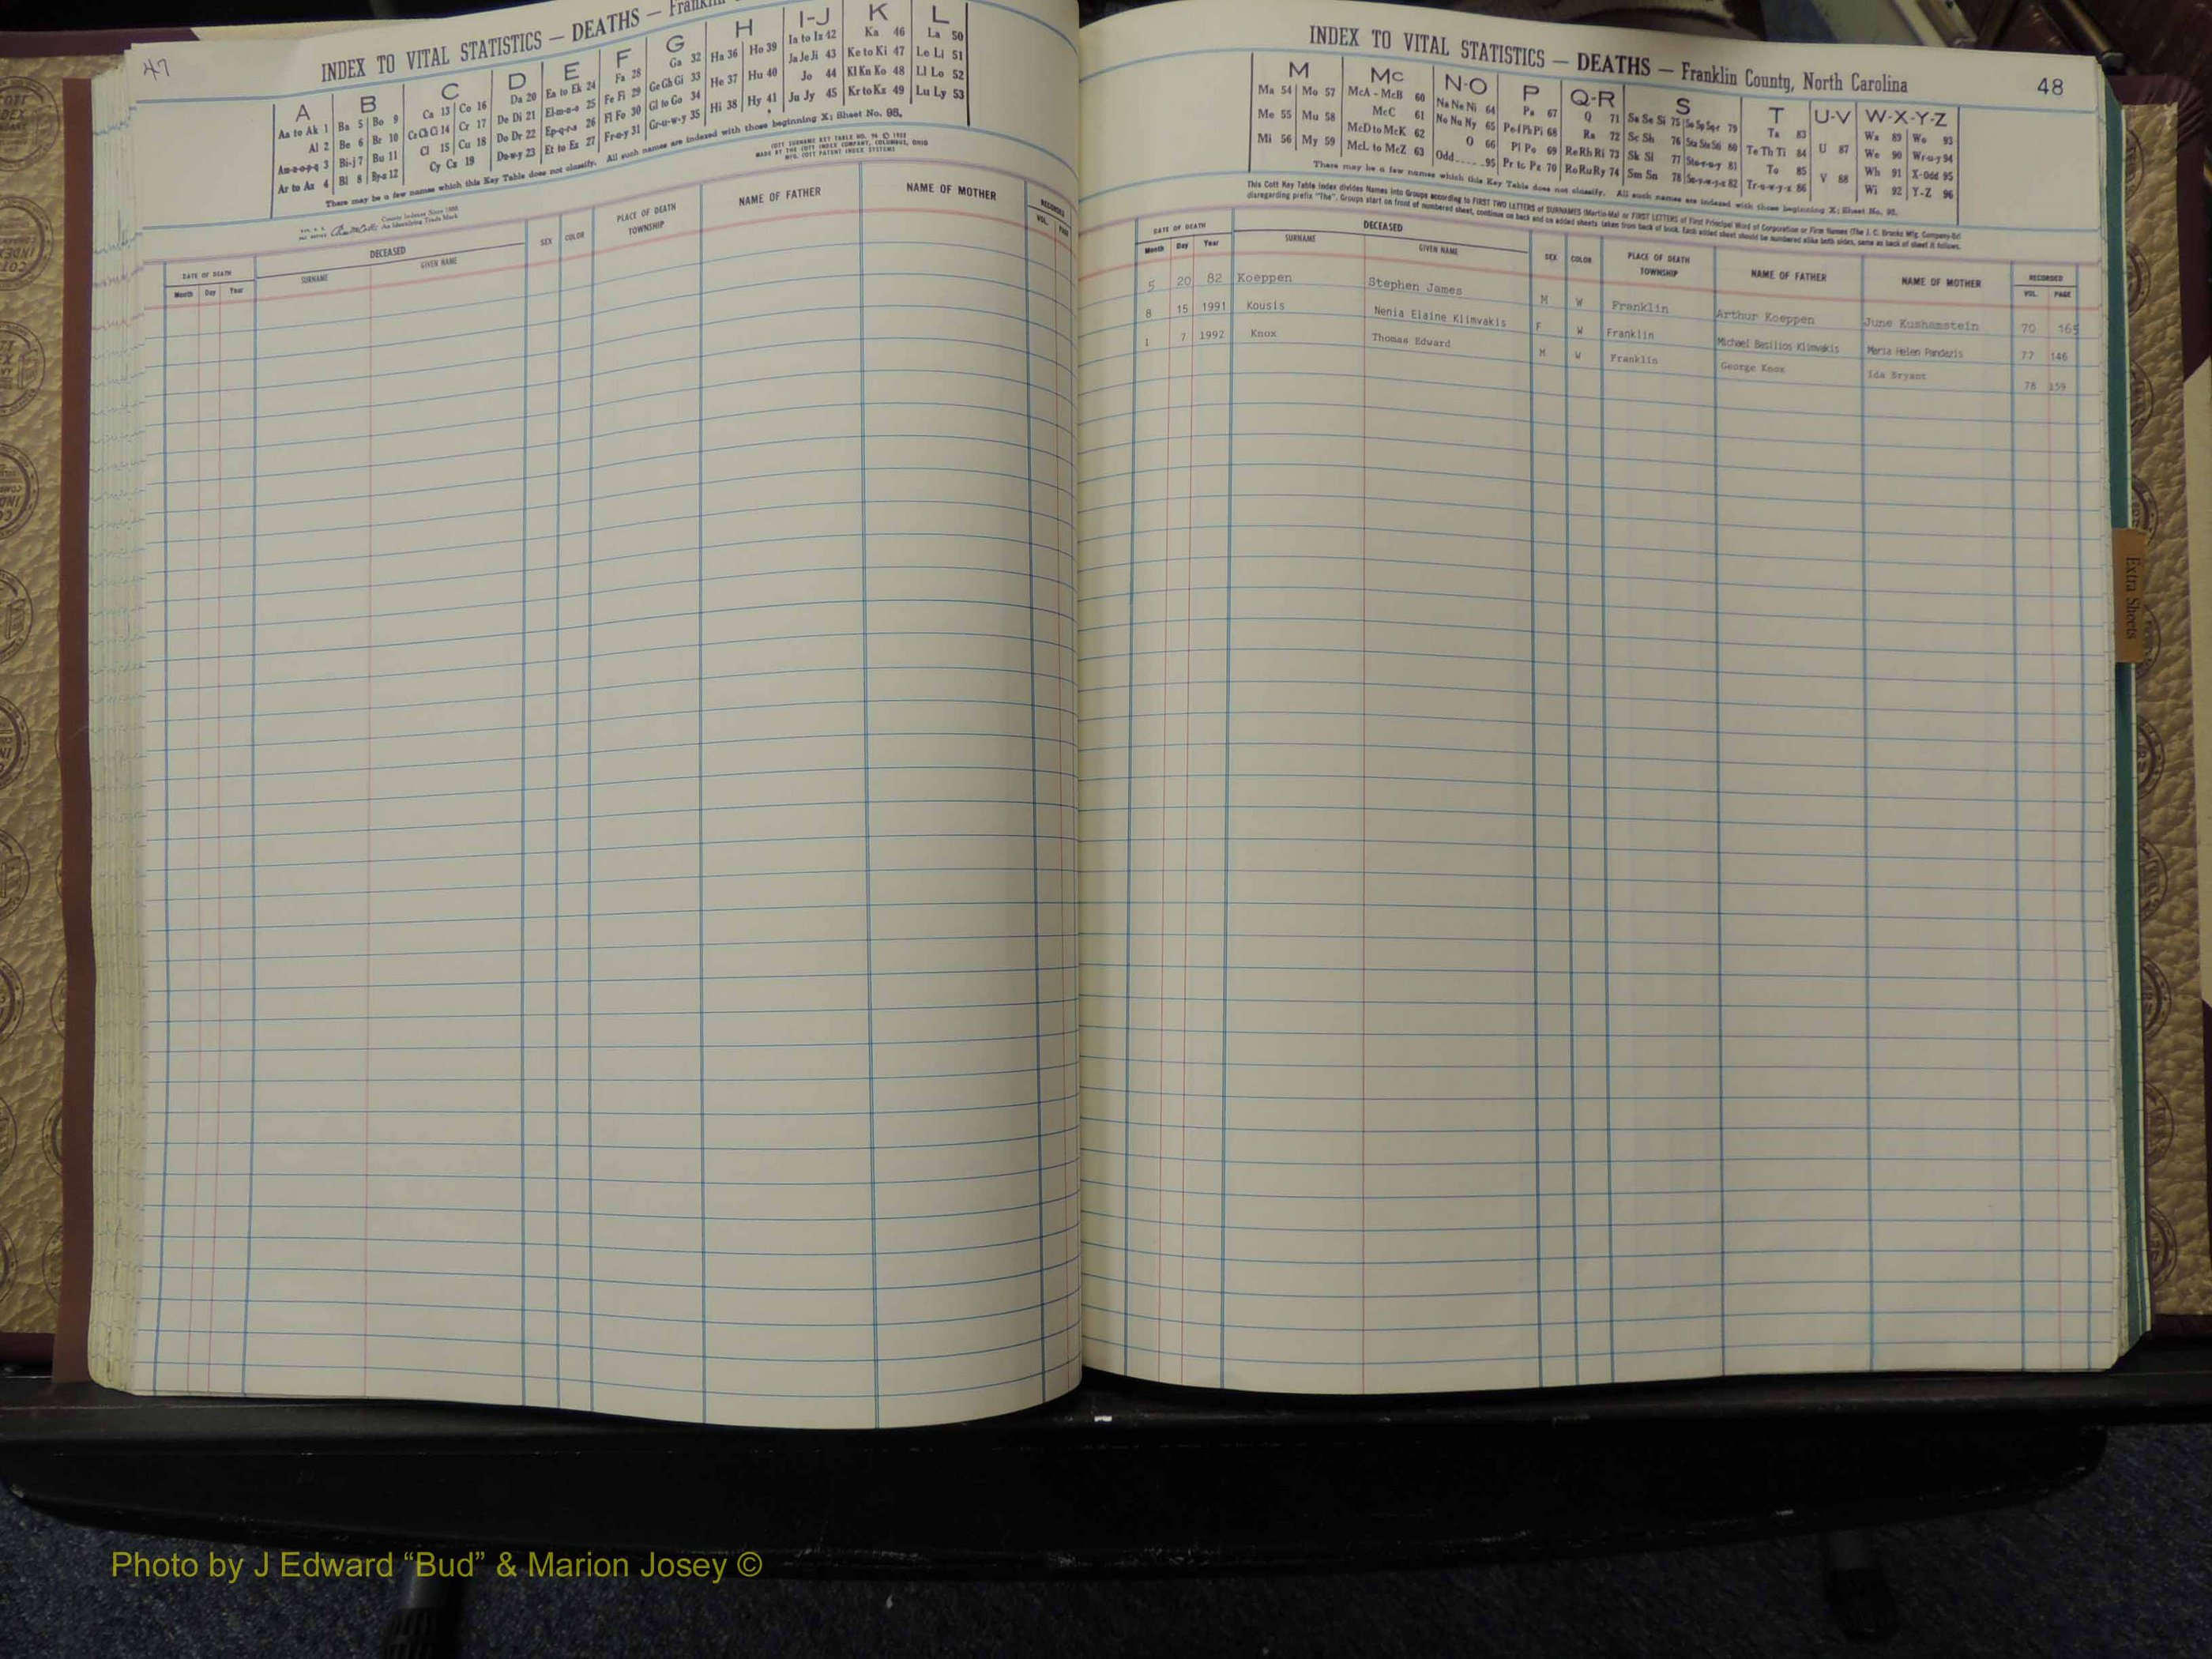 47
INDEX TO VITAL STATISTICS — DEATHS — Franklin
A B C D E F G H I-J K L
Aa to Ak 1 Ba 5 Bo 9 Ca 13 Co 16 Da 20 Ea to Ek 24 Fa 28 Ga 32 Ha 36 Ho 39 Ia to Iz 42 Ka 46 La 50
Al 2 Be 6 Br 10 Ce Ch Ci 14 Cr 17 De Di 21 El-m-n-o 25 Fe Fi 29 Ge Gh Gi 33 He 37 Hu 40 Ja Je Ji 43 Ke to Ki 47 Le Li 51
Am-n-o-p-q 3 Bi-j 7 Bu 11 Cl 15 Cu 18 Do Dr 22 Ep-q-r-s 26 Fl Fo 30 Gl to Go 34 Hi 38 Hy 41 Jo 44 Kl Kn Ko 48 Ll Lo 52
Ar to Az 4 Bl 8 By-z 12 Cy Cz 19 Du-w-y 23 Et to Ez 27 Fr-u-y 31 Gr-u-w-y 35 Ju Jy 45 Kr to Kz 49 Lu Ly 53
There may be a few names which this Key Table does not classify. All such names are indexed with those beginning X; Sheet No. 98.
COTT SURNAME KEY TABLE NO. 96 ©
MADE BY THE COTT INDEX COMPANY, COLUMBUS, OHIO
MFG. COTT PATENT INDEX SYSTEMS
County Indexes Since 1888
An Identifying Trade Mark
DATE OF DEATH DECEASED SEX COLOR PLACE OF DEATH TOWNSHIP NAME OF FATHER NAME OF MOTHER RECORDED
Month Day Year SURNAME GIVEN NAME VOL. PAGE
INDEX TO VITAL STATISTICS — DEATHS — Franklin County, North Carolina
48
M Mc N-O P Q-R S T U-V W-X-Y-Z
Ma 54 Mo 57 McA - McB 60 Na Ne Ni 64 Pa 67 Q 71 Sa Se Si 75 So Sp Sq-r 79 Ta 83 U 87 Wa 89 Wo 93
Me 55 Mu 58 McC 61 No Nu Ny 65 Pe-f Ph Pi 68 Ra 72 Sc Sh 76 Sta Ste Sti 80 Te Th Ti 84 V 88 We 90 Wr-u-y 94
Mi 56 My 59 McD to McK 62 O 66 Pl Po 69 Re Rh Ri 73 Sk Sl 77 Sto-r-u-y 81 To 85 Wh 91 X-Odd 95
McL to McZ 63 Odd 95 Pr to Pz 70 Ro Ru Ry 74 Sm Sn 78 Su-v-w-y-z 82 Tr-u-w-y-z 86 Wi 92 Y-Z 96
There may be a few names which this Key Table does not classify. All such names are indexed with those beginning X; Sheet No. 98.
This Cott Key Table Index divides Names into Groups according to FIRST TWO LETTERS of SURNAMES (Martin-Ma) or FIRST LETTERS of First Principal Word of Corporation or Firm Names (The J. C. Brooks Mfg. Company-Br)
disregarding prefix "The". Groups start on front of numbered sheet, continue on back and on added sheets taken from back of book. Each added sheet should be numbered alike both sides, same as back of sheet it follows.
DATE OF DEATH DECEASED SEX COLOR PLACE OF DEATH TOWNSHIP NAME OF FATHER NAME OF MOTHER RECORDED
Month Day Year SURNAME GIVEN NAME VOL. PAGE
5 20 82 Koeppen Stephen James M W Franklin Arthur Koeppen June Kushamstein 70 165
8 15 1991 Kousis Nenia Elaine Klimvakis F W Franklin Michael Basilios Klimvakis Maria Helen Pandazis 77 146
1 7 1992 Knox Thomas Edward M W Franklin George Knox Ida Bryant 78 159
Extra Sheets
Photo by J Edward “Bud” & Marion Josey ©